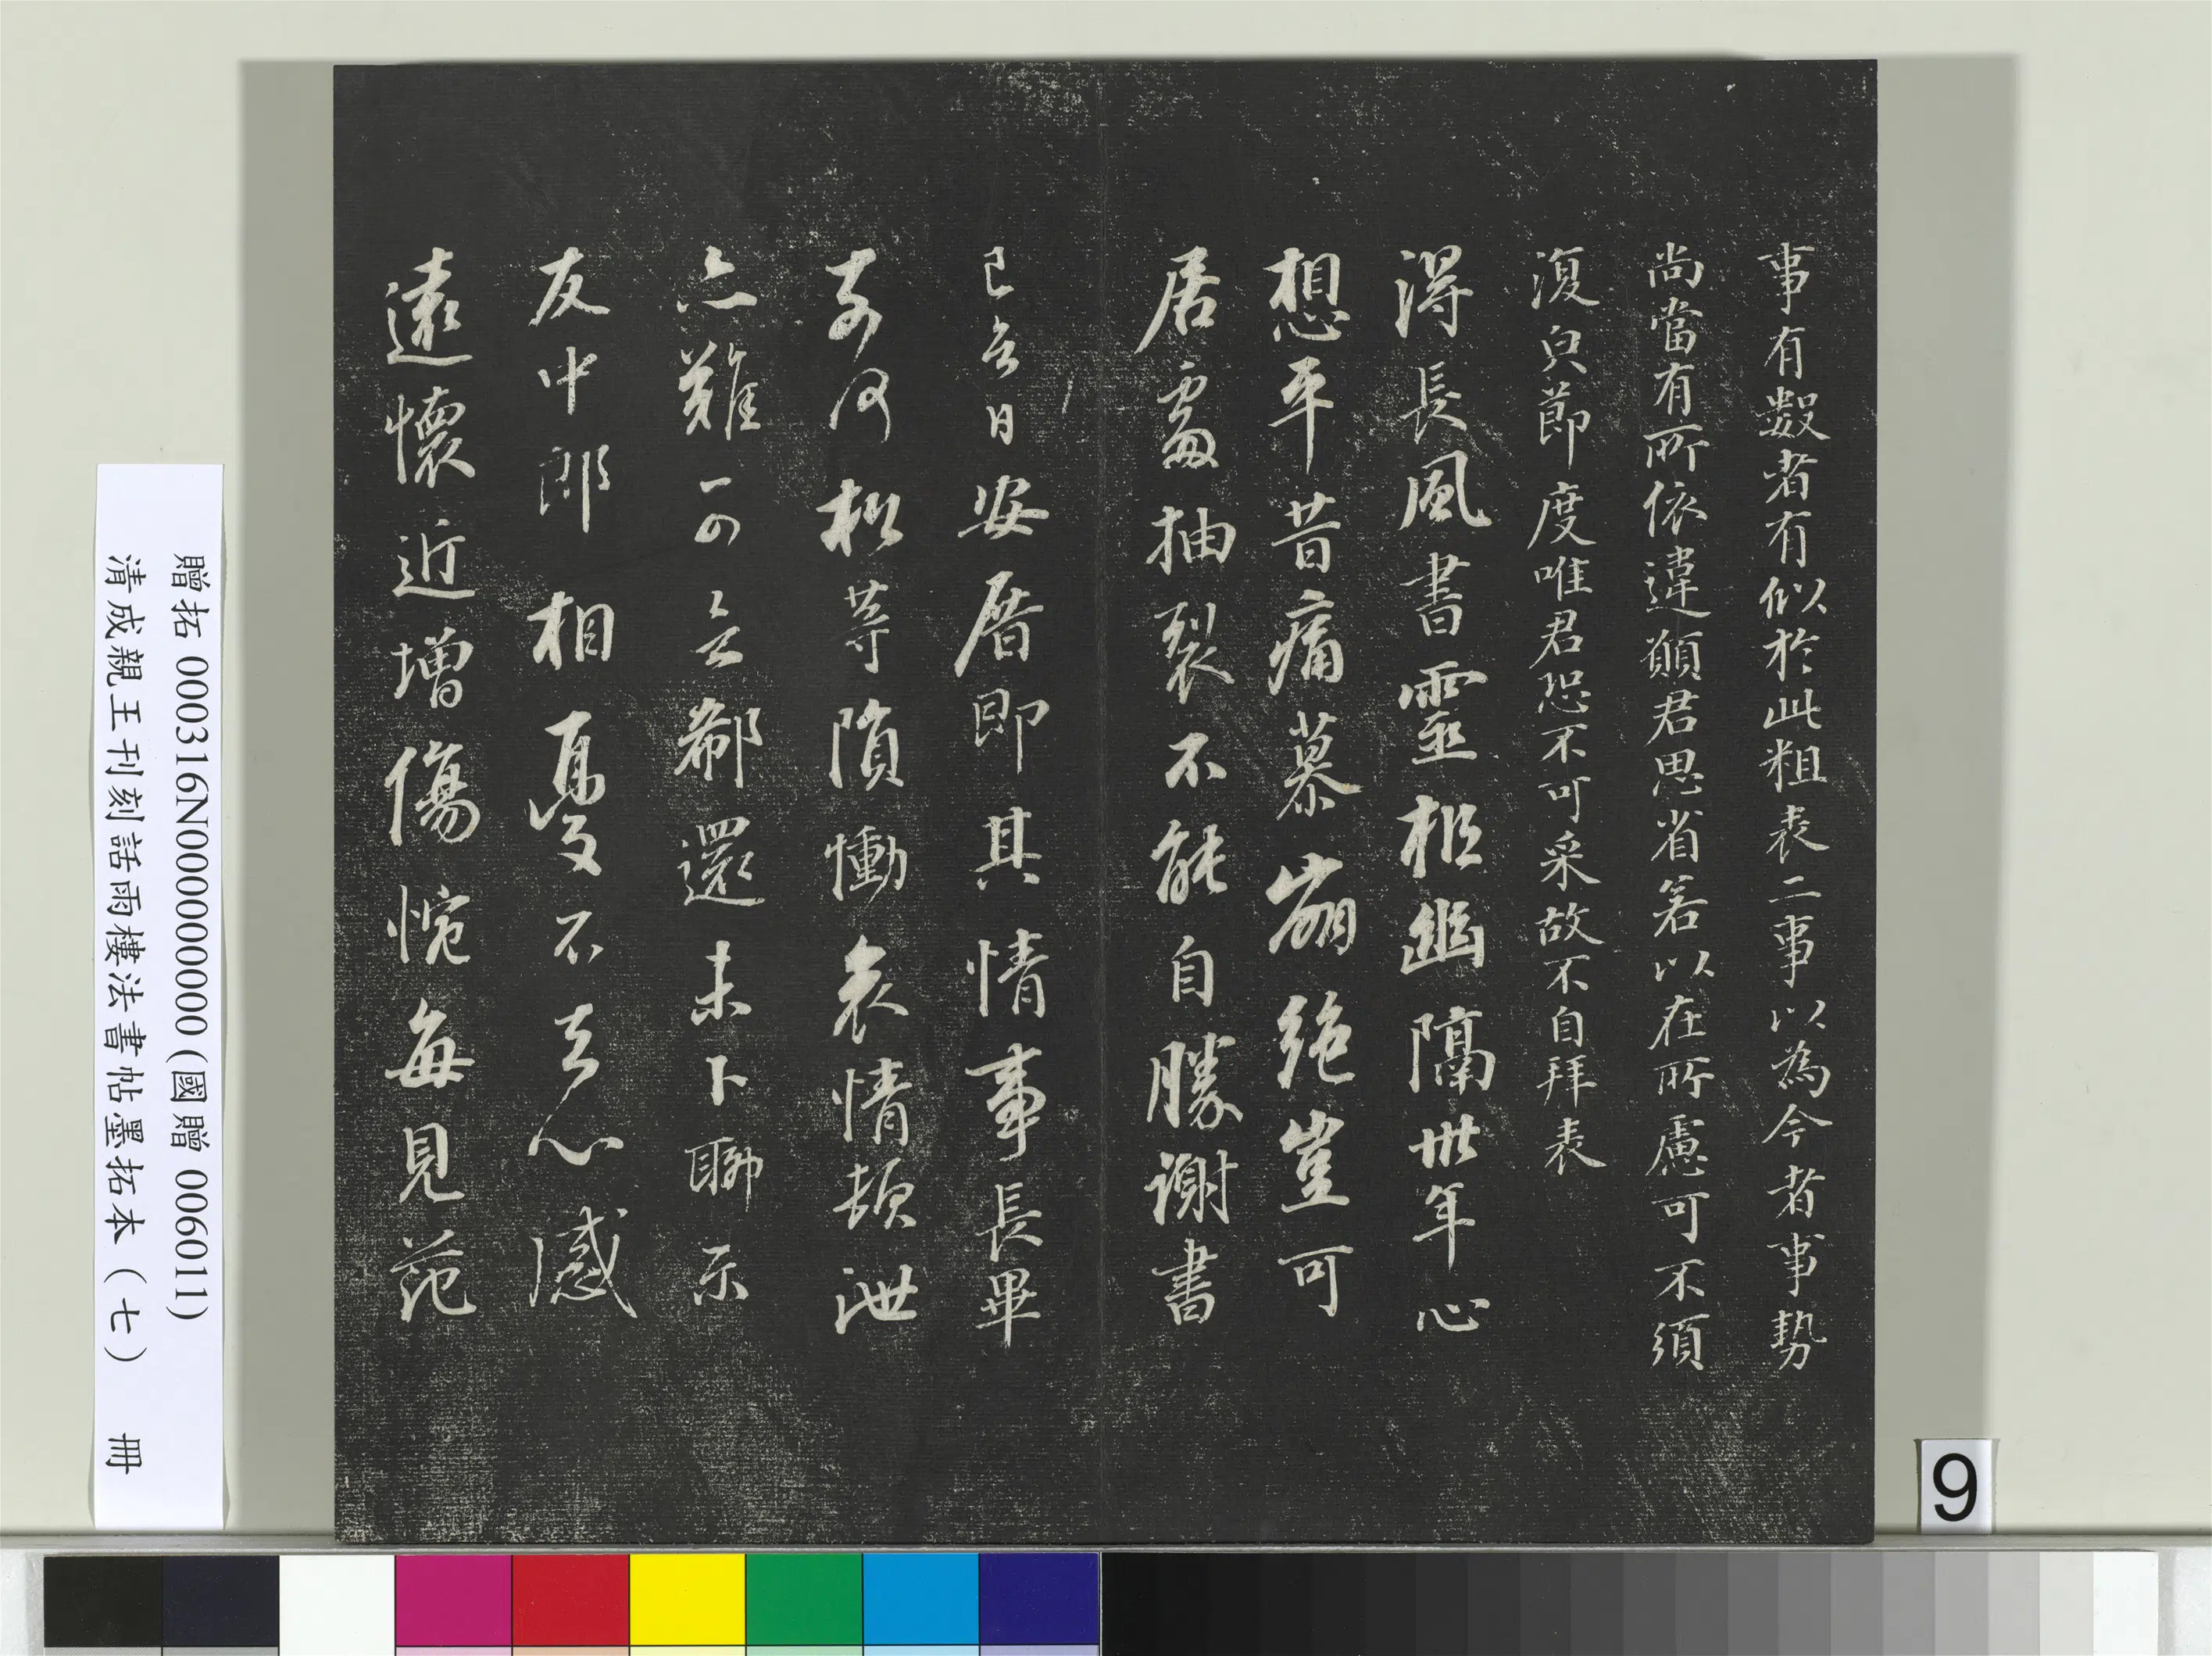 事有數者有似於此粗表二事以為今者事勢
尚當有所依違願君思省若以在所慮可不須
復白節度唯君恐不可采故不自拜表
得長風書靈柩幽隔卅年心
想平昔痛慕崩絕豈可
居處抽裂不能自勝謝書
已日安厝即其情事長畢
奈何松等隕慟哀情頓泄
亦難可言郗還未卜聊示
友中郎相憂不去心感
遠懷近增傷惋每見范
贈拓 000316N000000000(國贈 006011)
清成親王刊刻詒雨樓法書帖墨拓本(七) 冊
9